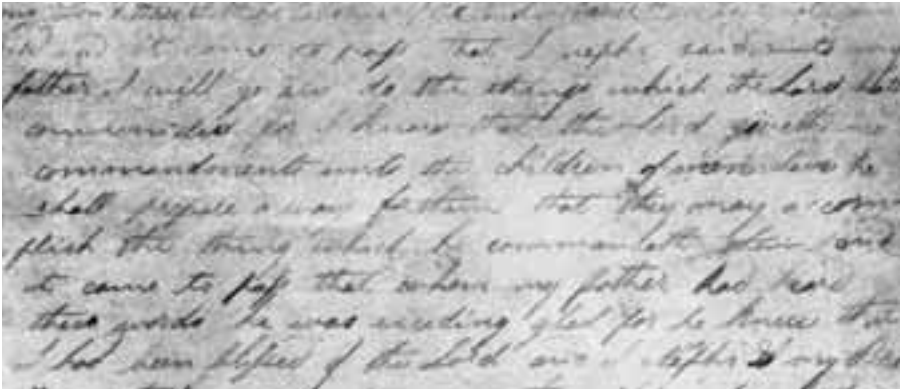 and it came to pass that I nephi said unto my
father I will go and do the things which the Lord hath
commanded for I know that the Lord giveth no
commandments unto the children of men save he
shall prepare a way for them that they may accom
plish the thing which he commandeth them and
it came to pass that when my father had heard
these words he was exceding glad for he knew that
I had been blessed of the Lord and I nephi